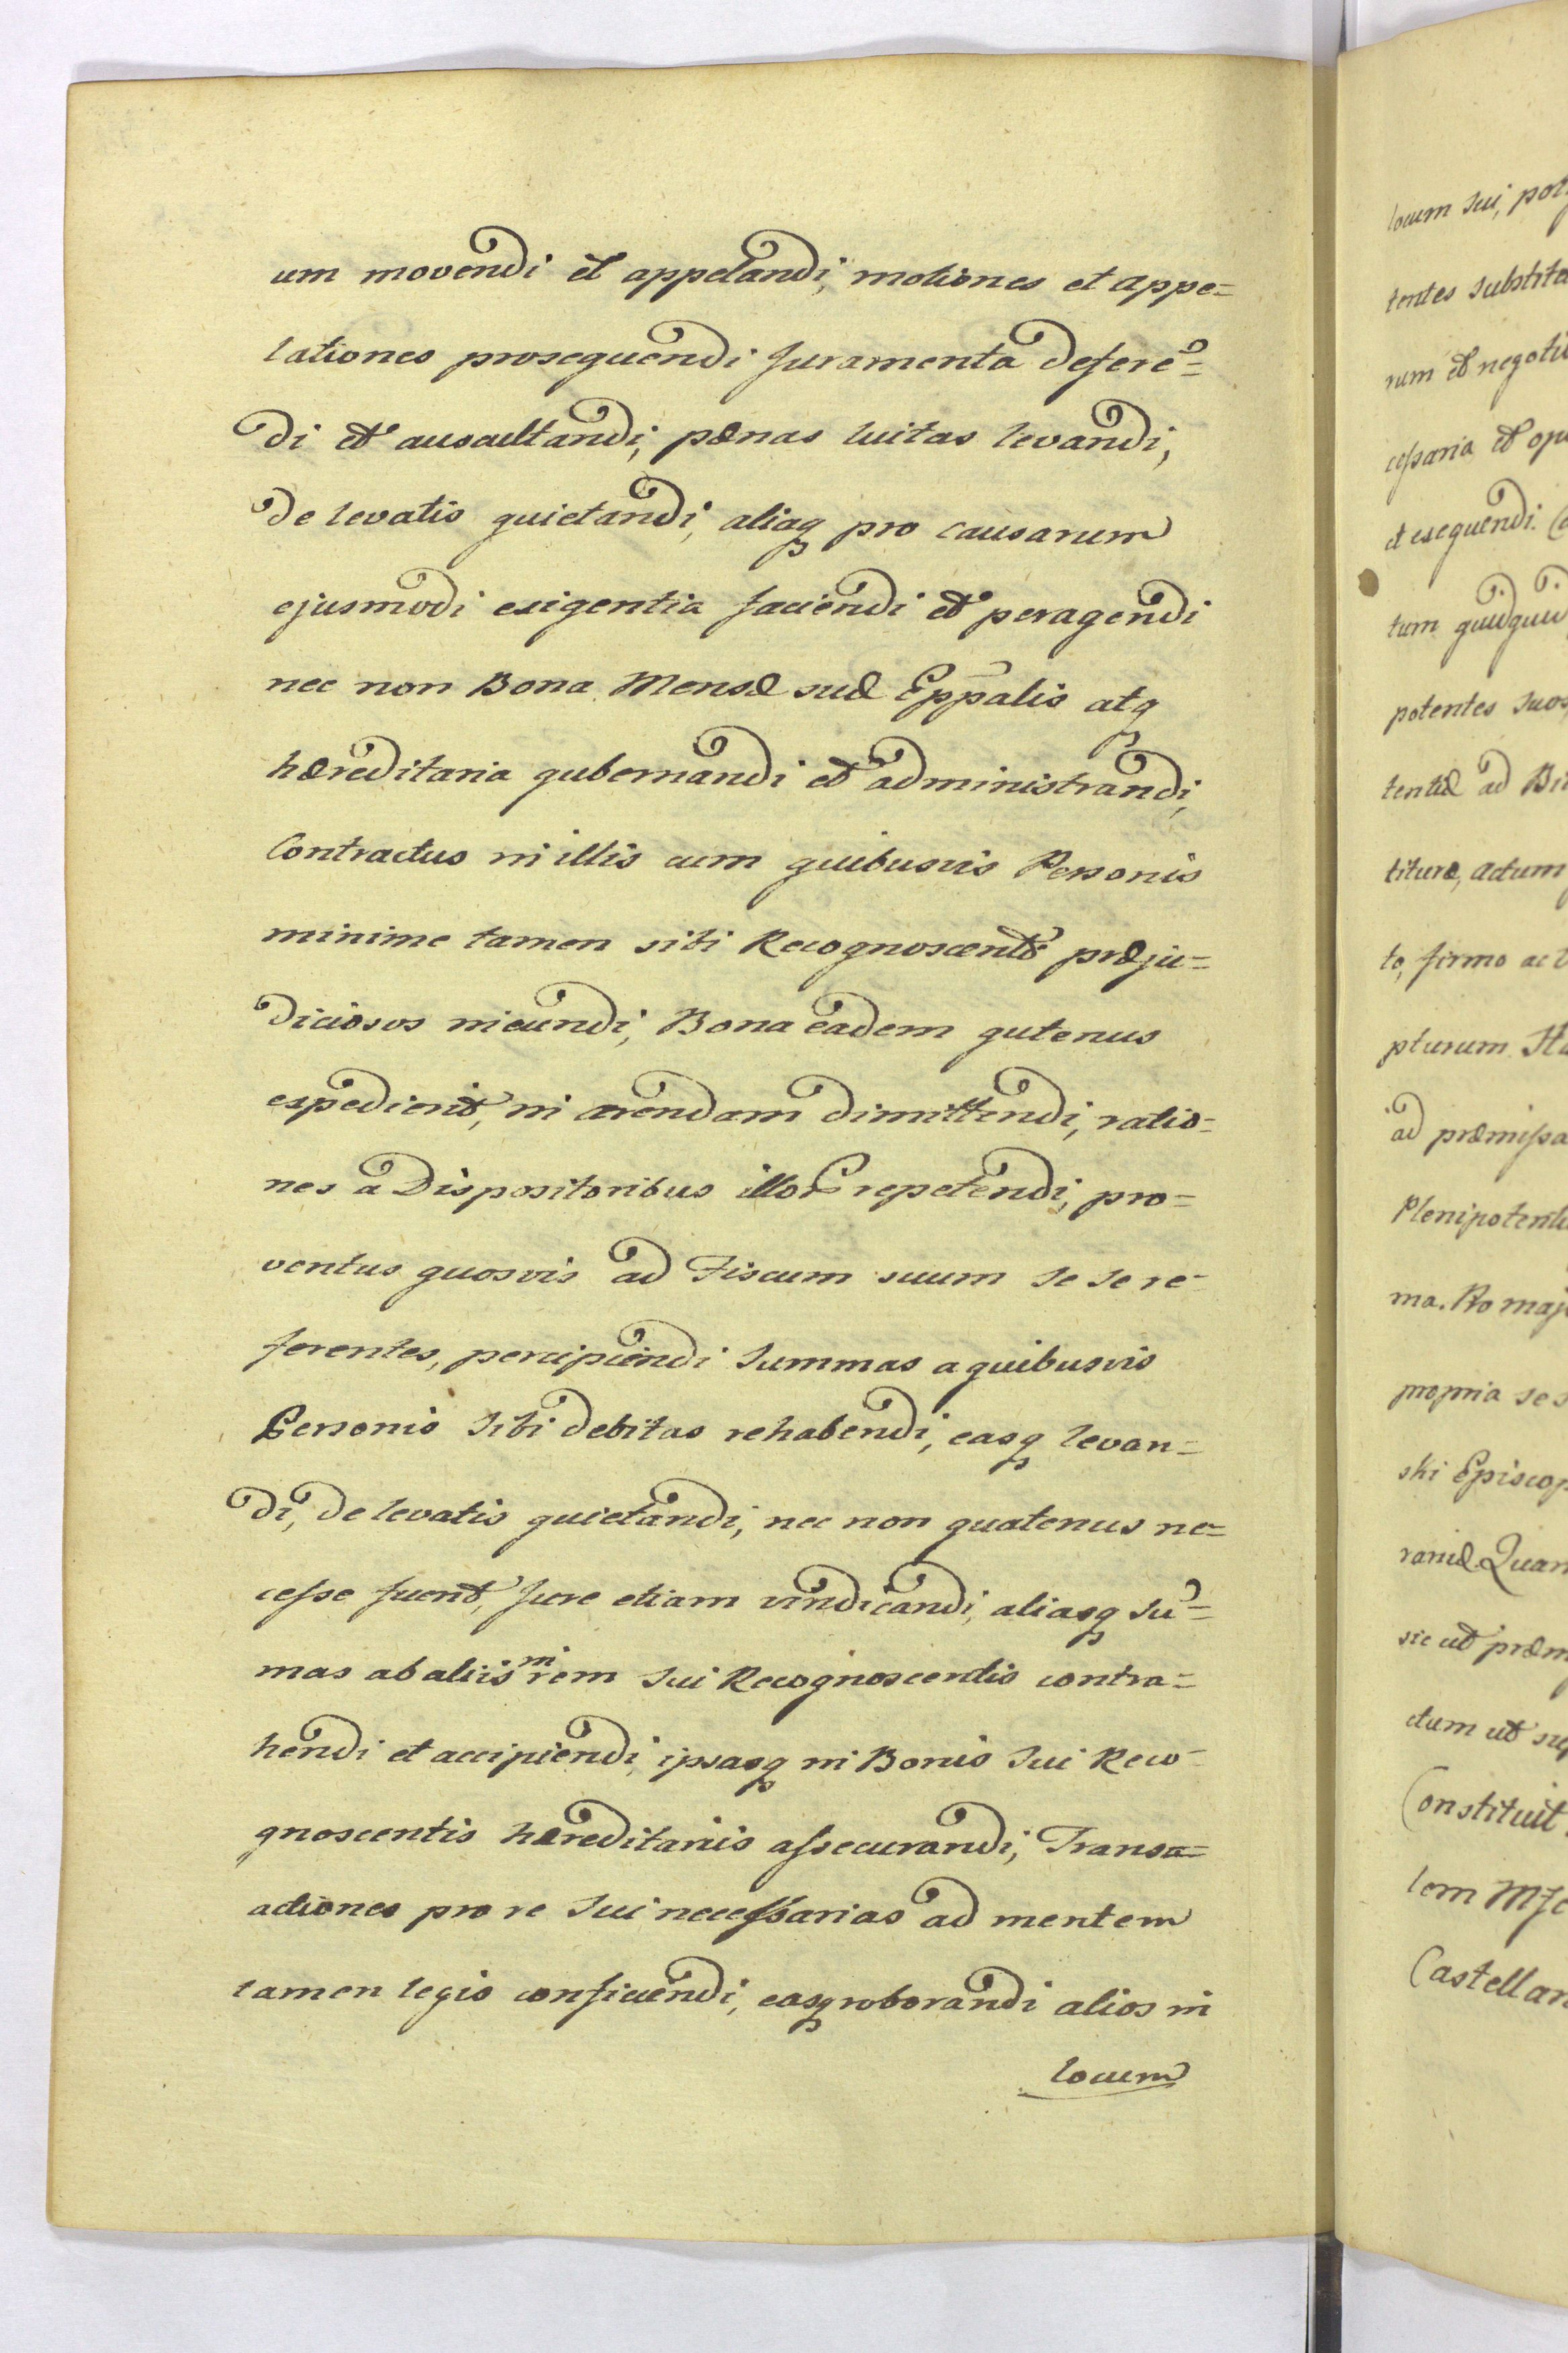 um movendi et appelandi, motiones et appe=
lationes prosequendi Juramenta deferē=
di et auscultandi, pænas luitas levandi,
de levatis quietandi, aliaq pro causarum
ejusmodi exigentia faciendi et peragendi
nec non Bona Mensæ suæ Eppalis atq
hæreditaria gubernandi et administrandi,
Contractus in illis cum quibusvis Personis
minime tamen sibi Recognoscenti præju=
diciosos ineundi, Bona eadem qutenus
expedierit, in arendam dimittendi, ratio=
nes a Dispositoribus illor repetendi, pro=
ventus quosvis ad Fiscum suum se se re=
ferentes, percipiendi Summas a quibusvis
Personis sibi debitas rehabendi, easq levan=
di, de levatis quietandi, nec non quatenus ne=
cesse fuerit, Jure etiam vindicandi, aliasq Sū=
mas ab aliis in rem sui Recognoscentis contra=
hendi et accipiendi, ipsasq in Bonis Sui Reco=
gnoscentis hæreditariis assecurandi, Transa=
actiones pro re sui necessarias ad mentem
tamen legis conficiendi, easq roborandi alios in
locum
locum sui,
tentes
rum et
cessaria et
et exequendi.
tum
potentes suos
tentiæ ad
titure, actum
to, firmo ac
pturum
ad præmissa
ma. Pro
propria
ski
raniæ. Quam
sic ut
ctum ut
Constituit
lem